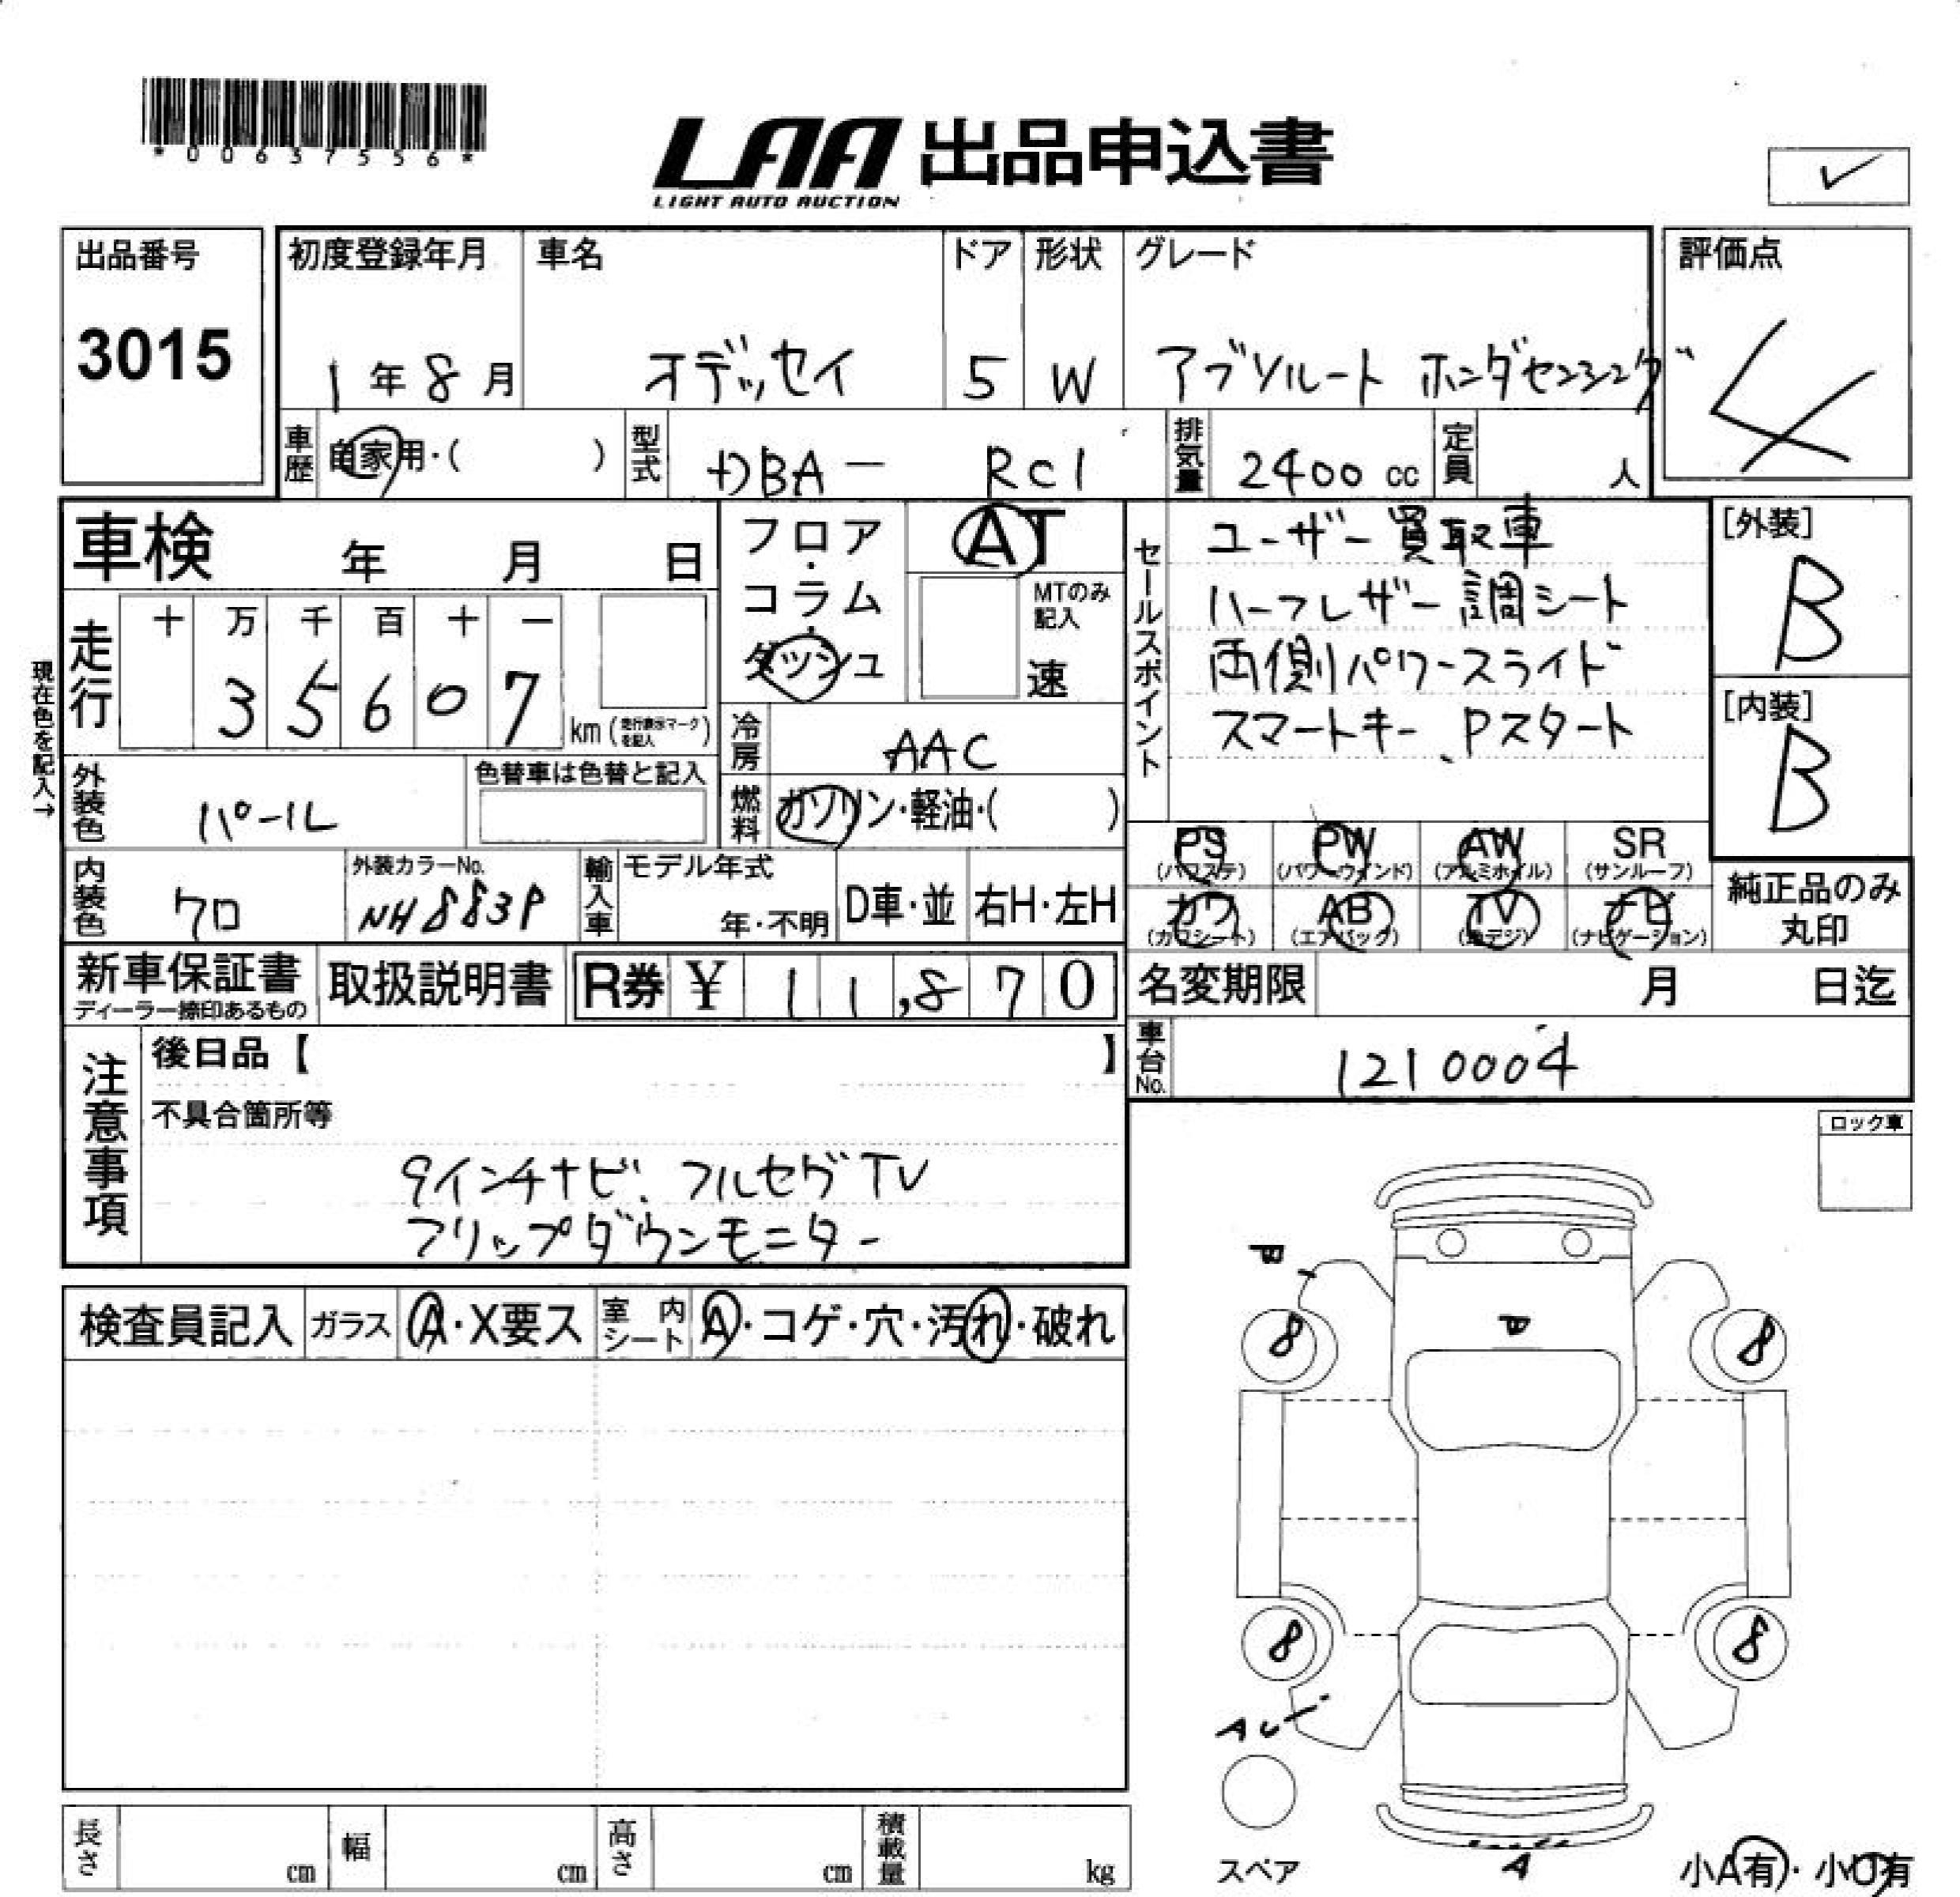 *00637556*
LAA 出品申込書
LIGHT AUTO AUCTION
出品番号
3015
初度登録年月 車名 ドア 形状 グレード
1年8月 オデッセイ 5 W アブソルート ホンダセンシング
評価点
4
車歴 自家用・( ) 型式 DBA- RC1 排気量 2400 cc 定員 人
車検 年 月 日
フロア・コラム・ダッシュ
AT
MTのみ記入
速
現在色を記入→
走行 十 万 千 百 十 一
3 5 6 0 7 km (走行表示マークを記入)
冷房 AAC
外装色 パール
色替車は色替と記入
燃料 ガソリン・軽油・( )
内装色 クロ
外装カラーNo.
NH883P
輸入車 モデル年式
年・不明 D車・並 右H・左H
セールスポイント
ユーザー買取車
ハーフレザー調シート
両側パワースライド
スマートキー、Pスタート
[外装]
B
[内装]
B
PS (パワステ) PW (パワーウインド) AW (アルミホイル) SR (サンルーフ)
カワ (カワシート) AB (エアバック) TV (地デジ) ナビ (ナビゲーション)
純正品のみ
丸印
新車保証書
ディーラー捺印あるもの
取扱説明書
R券 ¥ 11,870
名変期限 月 日迄
車台No. 1210004
注意事項
後日品【 】
不具合箇所等
9インチナビ、フルセグTV
フリップダウンモニター
ロック車
検査員記入 ガラス A・X要ス 室内シート A・コゲ・穴・汚れ・破れ
B
B
8 8
8 8
AU
スペア
A
小A有・小U有
長さ cm 幅 cm 高さ cm 積載量 kg